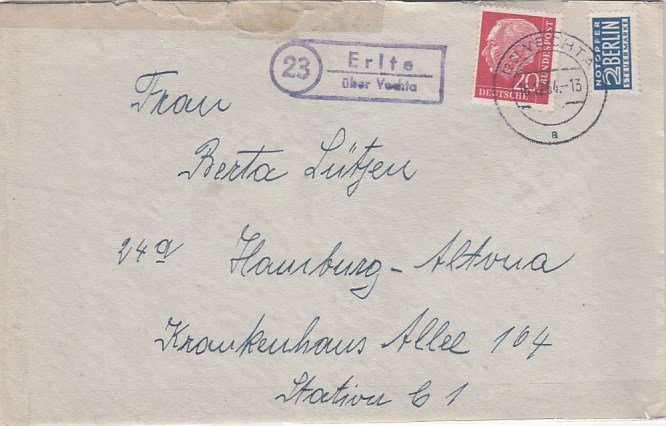 23
Erlte
über Vechta
20
DEUTSCHE BUNDESPOST
VECHTA
a
NOTOPFER
2 BERLIN
STEUERMARKE
Frau
Berta Lütjen
24a Hamburg-Altona
Krankenhaus Allee 164
Station C 1